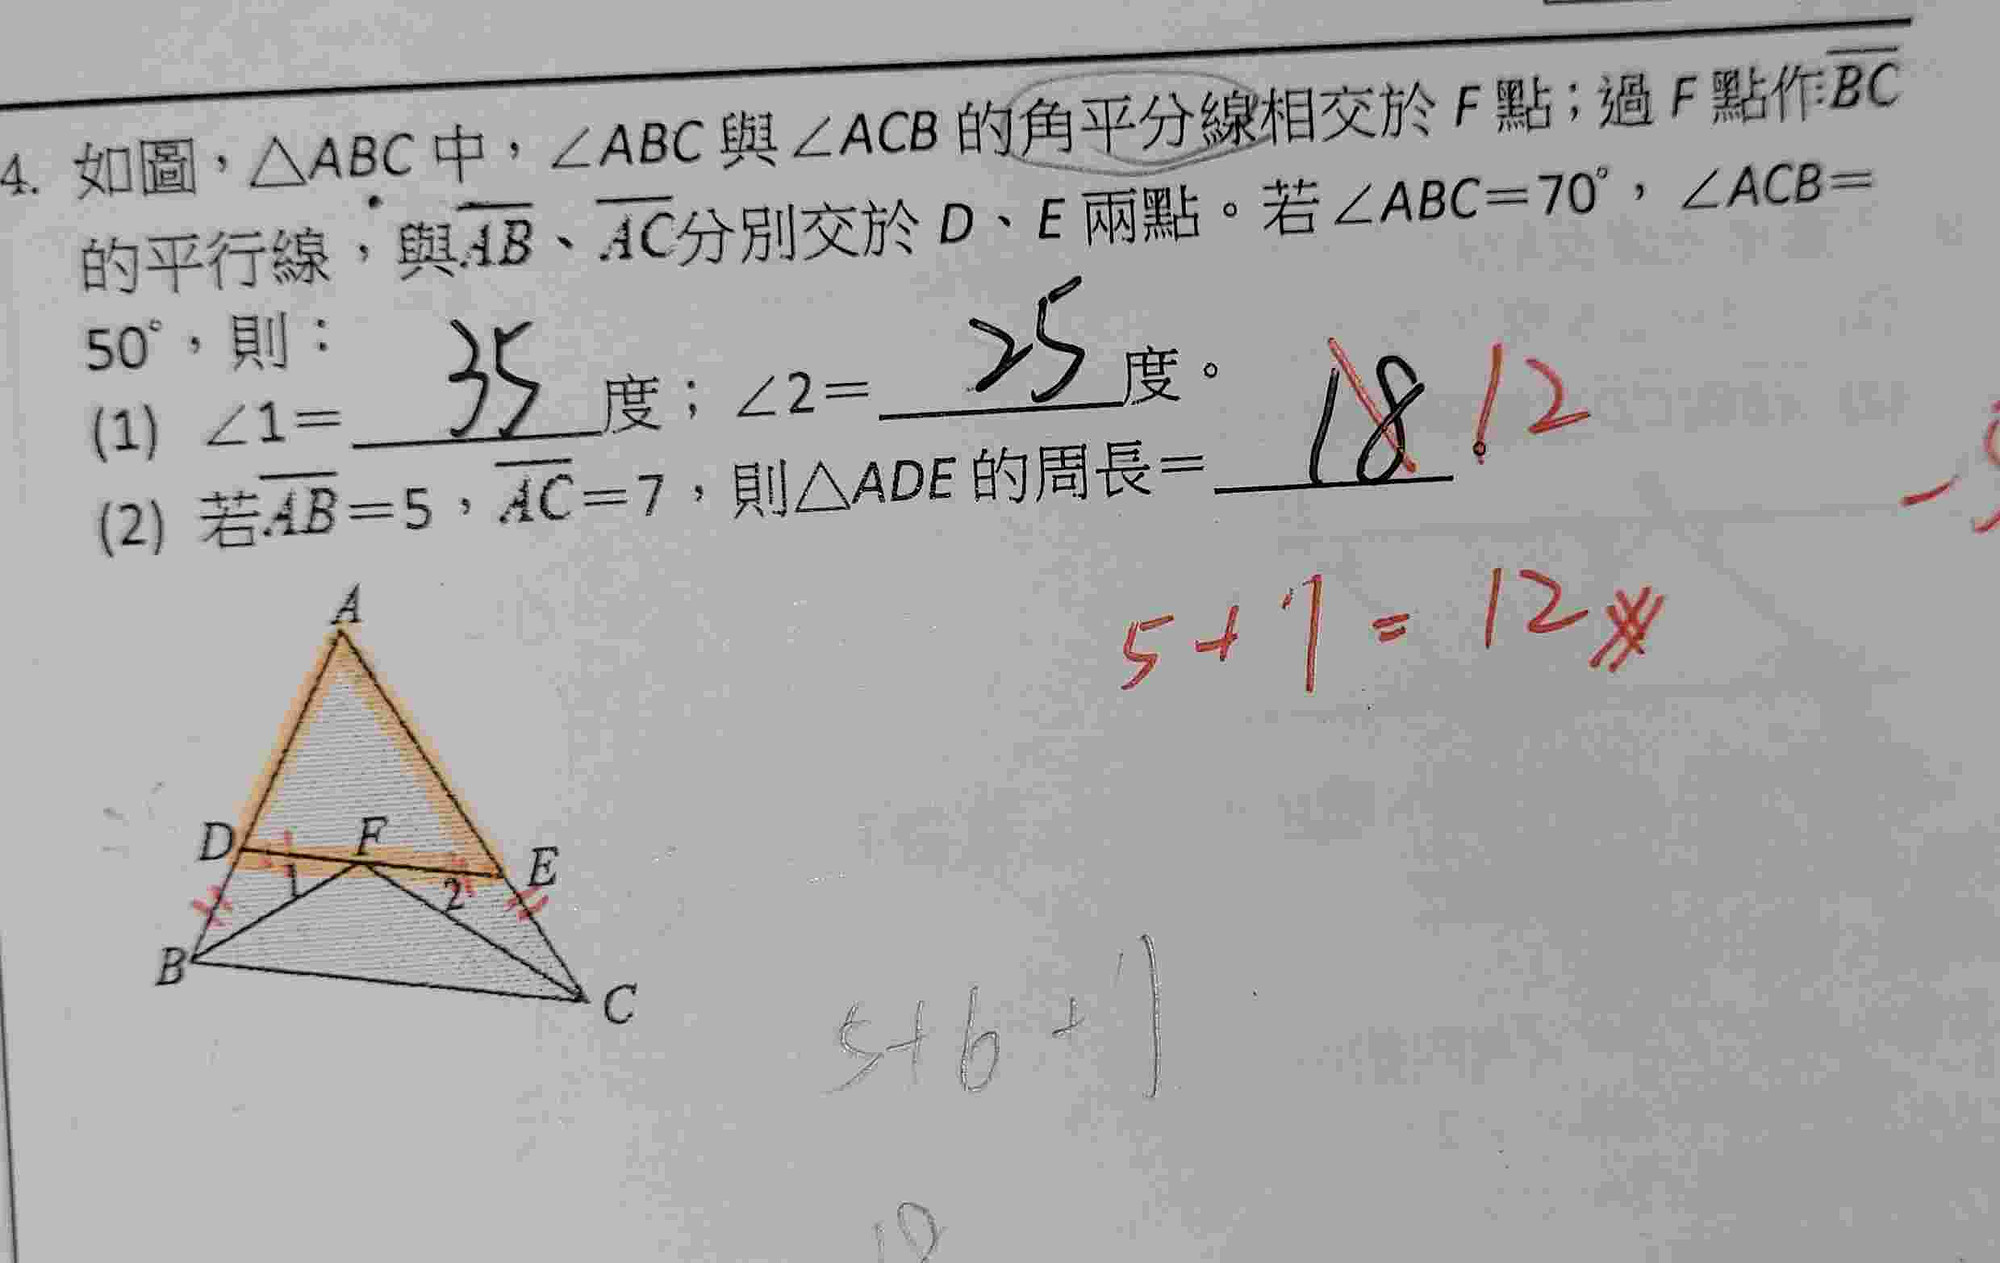 4. 如圖，△ABC 中，∠ABC 與∠ACB 的角平分線相交於 F 點；過 F 點作BC
的平行線，與AB、AC分別交於 D、E 兩點。若∠ABC=70°，∠ACB=
50°，則：
(1) ∠1= 35 度；∠2= 25 度。
(2) 若AB=5，AC=7，則△ADE 的周長= 18 12
5+7=12
A
D F E
1 2
B C
5+6+7